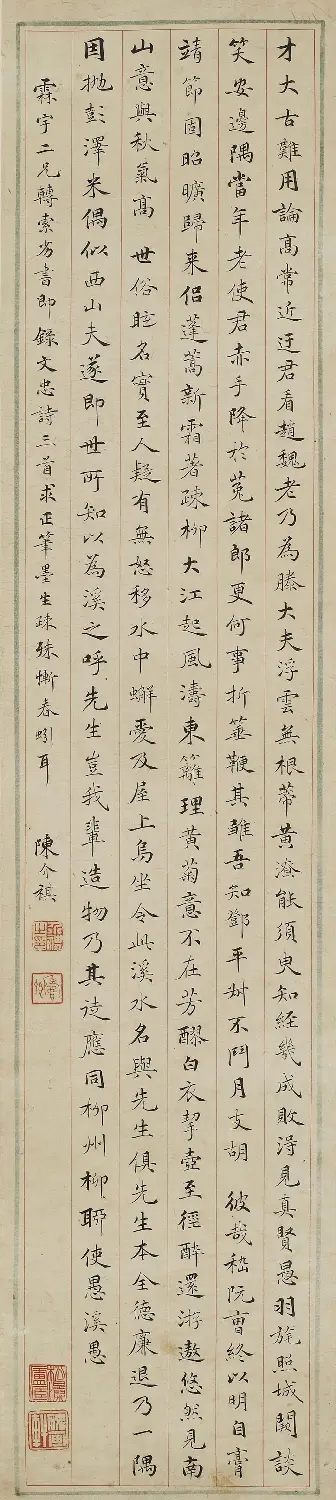 才大古難用論高常近迂君看趙魏老乃為滕大夫浮雲無根蒂黃潦能須臾知經幾成敗得見真賢愚羽旄照城闕談
笑安邊隅當年老使君赤手降於菟諸郎更何事折箠鞭其雛吾知鄧平叔不鬥月支胡 彼哉嵇阮曹終以明自膏
靖節固昭曠歸来侶蓬蒿新霜著疎柳大江起風濤東籬理黃菊意不在芳醪白衣挈壺至徑醉還游遨悠然見南
山意與秋氣高 世俗眩名實至人疑有無怒移水中蠏愛及屋上烏坐令此溪水名與先生俱先生本全德廉退乃一隅
因拋彭澤米偶似西山夫遂即世所知以為溪之呼先生豈我輩造物乃其徒應同柳州柳聊使愚溪愚
霖宇二兄轉索劣書即錄文忠詩三首求正筆墨生疎殊慚春蚓耳 陳介祺